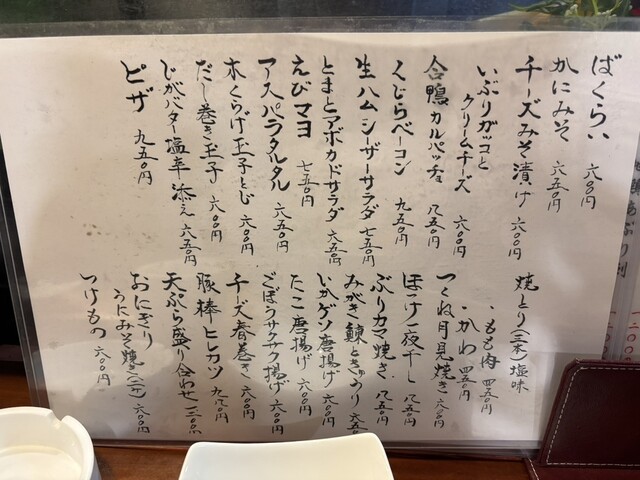 ばくらい 六〇〇円
かにみそ 六五〇円
チーズみそ漬け 六〇〇円
いぶりガッコと
クリームチーズ 六〇〇円
合鴨カルパッチョ 八五〇円
くじらベーコン 九五〇円
生ハムシーザーサラダ 七五〇円
とまとアボカドサラダ 六五〇円
えびマヨ 七五〇円
アスパラタルタル 六五〇円
木くらげ玉子とじ 六〇〇円
だし巻き玉子 六〇〇円
じがバター塩辛添え 六五〇円
ピザ 九五〇円
焼とり(三本)塩味
・もも肉 四五〇円
・かわ 四五〇円
つくね月見焼き 六〇〇円
ほっけ一夜干し 八五〇円
ぶりカマ焼き 八五〇円
みがき鰊ときゅうり 六五〇
いかゲソ唐揚げ 六〇〇円
たこ唐揚げ 六〇〇円
ごぼうサクサク揚げ 六〇〇円
チーズ春巻き 六〇〇円
豚棒ヒレカツ 九八〇円
天ぷら盛り合わせ 一二〇〇
おにぎり
うにみそ焼き(二ケ) 六〇〇円
つけもの 六〇〇円